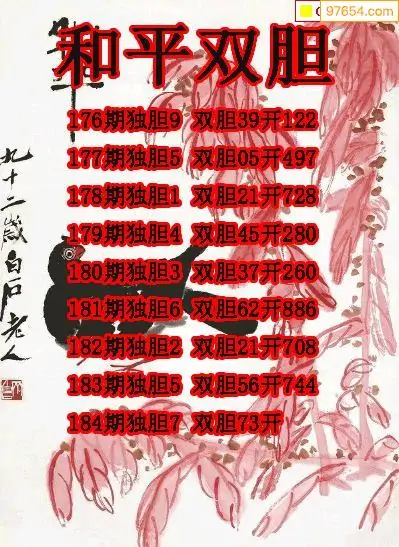 97654.com
和平双胆
176期独胆9 双胆39开122
177期独胆5 双胆05开497
178期独胆1 双胆21开728
179期独胆4 双胆45开280
180期独胆3 双胆37开260
181期独胆6 双胆62开886
182期独胆2 双胆21开708
183期独胆5 双胆56开744
184期独胆7 双胆73开
九十二岁白石老人